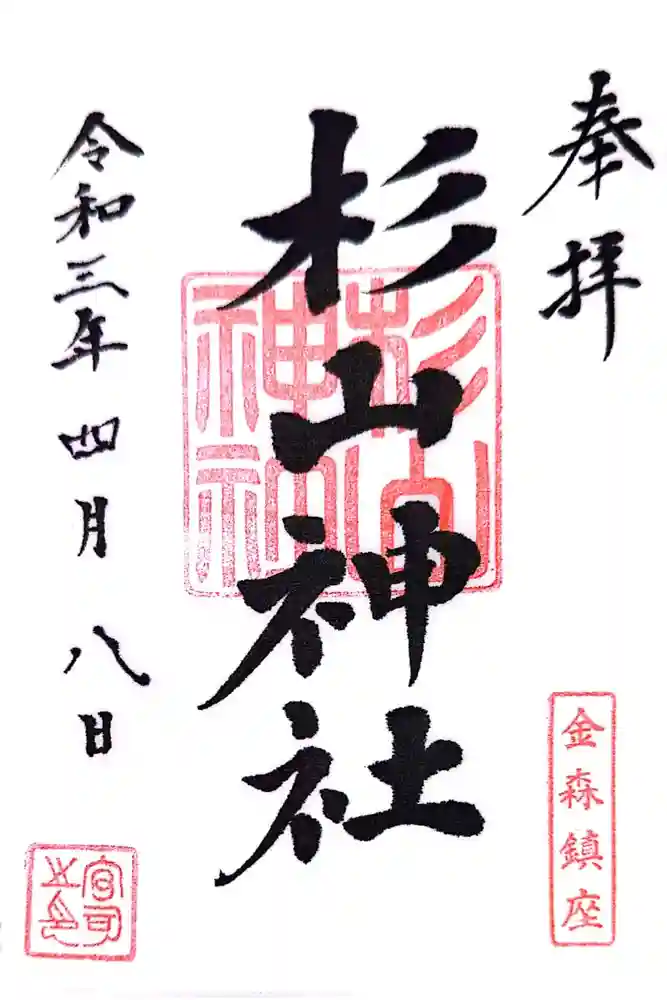 奉拝
金森鎮座
杉山神社
杉山神社
令和三年 四月 八日
宮司之印